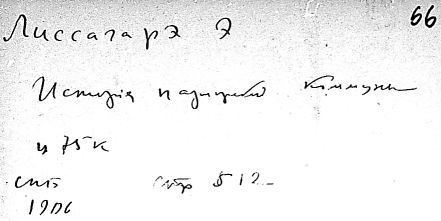 66
Лиссагарэ Э
Исторія парижской Коммуны
ц 75 к
СПБ стр 512
1906